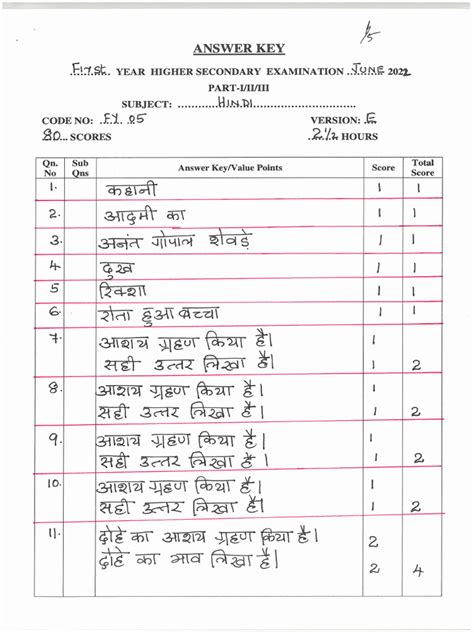 1/5
ANSWER KEY
First YEAR HIGHER SECONDARY EXAMINATION JUNE 2022
PART-I/II/III
SUBJECT: HINDI
CODE NO: FY 05 VERSION: E
80 SCORES 2½ HOURS
Qn. No Sub Qns Answer Key/Value Points Score Total Score
1. कहानी 1 1
2. आदमी का 1 1
3. अनंत गोपाल शेवड़े 1 1
4. दुख 1 1
5. रिक्शा 1 1
6. रोता हुआ बच्चा 1 1
7. आशय ग्रहण किया है। 1
सही उत्तर लिखा है। 1 2
8. आशय ग्रहण किया है। 1
सही उत्तर लिखा है। 1 2
9. आशय ग्रहण किया है। 1
सही उत्तर लिखा है। 1 2
10. आशय ग्रहण किया है। 1
सही उत्तर लिखा है। 1 2
11. दोहे का आशय ग्रहण किया है। 2
दोहे का भाव लिखा है। 2 4